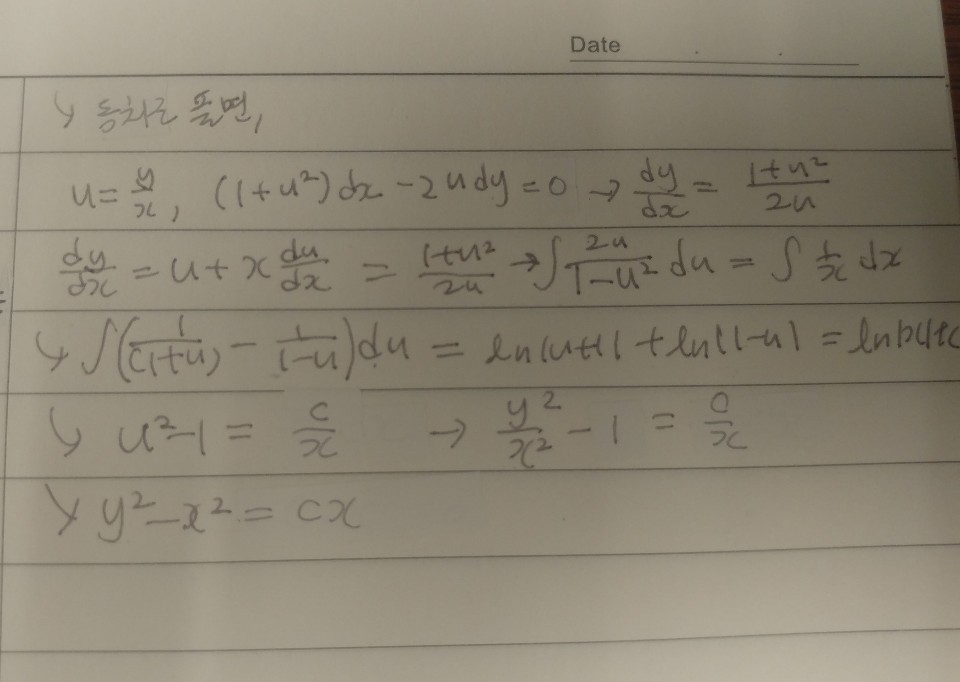 Date
↳ 동차로 풀면,
u = y/x, (1+u²)dx - 2u dy = 0 → dy/dx = (1+u²)/(2u)
dy/dx = u + x du/dx = (1+u²)/(2u) → ∫ 2u/(1-u²) du = ∫ 1/x dx
↳ ∫(1/(1+u) - 1/(1-u))du = ln|u+1| + ln|1-u| = ln|x|+c
↳ u²-1 = c/x → y²/x² - 1 = c/x
↳ y²-x² = cx